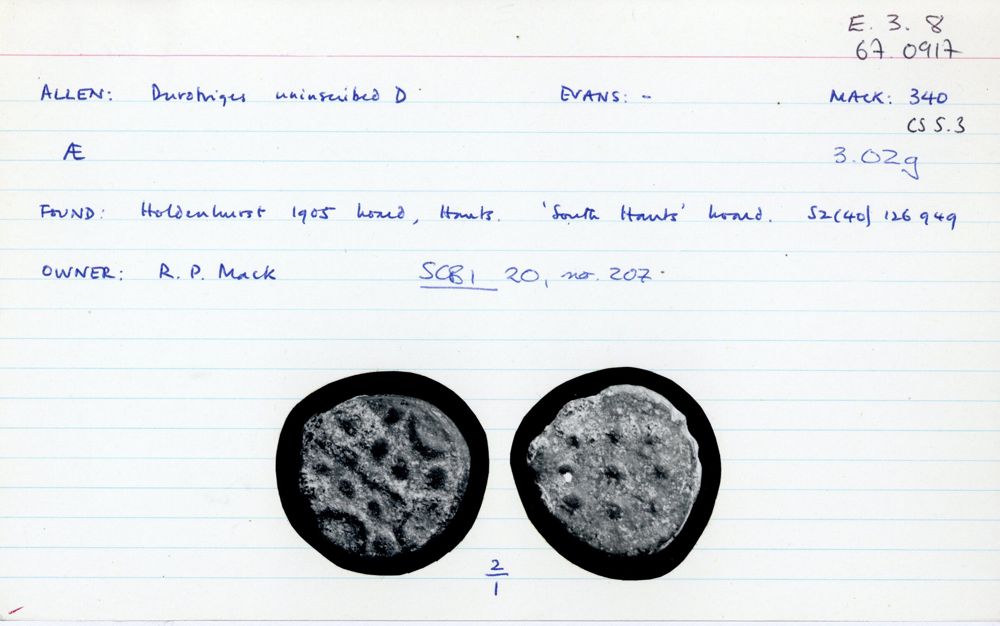 E. 3. 8
67.0917
ALLEN: Durotriges uninscribed D EVANS: - MACK: 340
CS S.3
Æ 3.02g
FOUND: Holdenhurst 1905 hoard, Hants. 'South Hants' hoard. SZ(40) 126949
OWNER: R. P. Mack SCBI 20, no. 207.
2
1